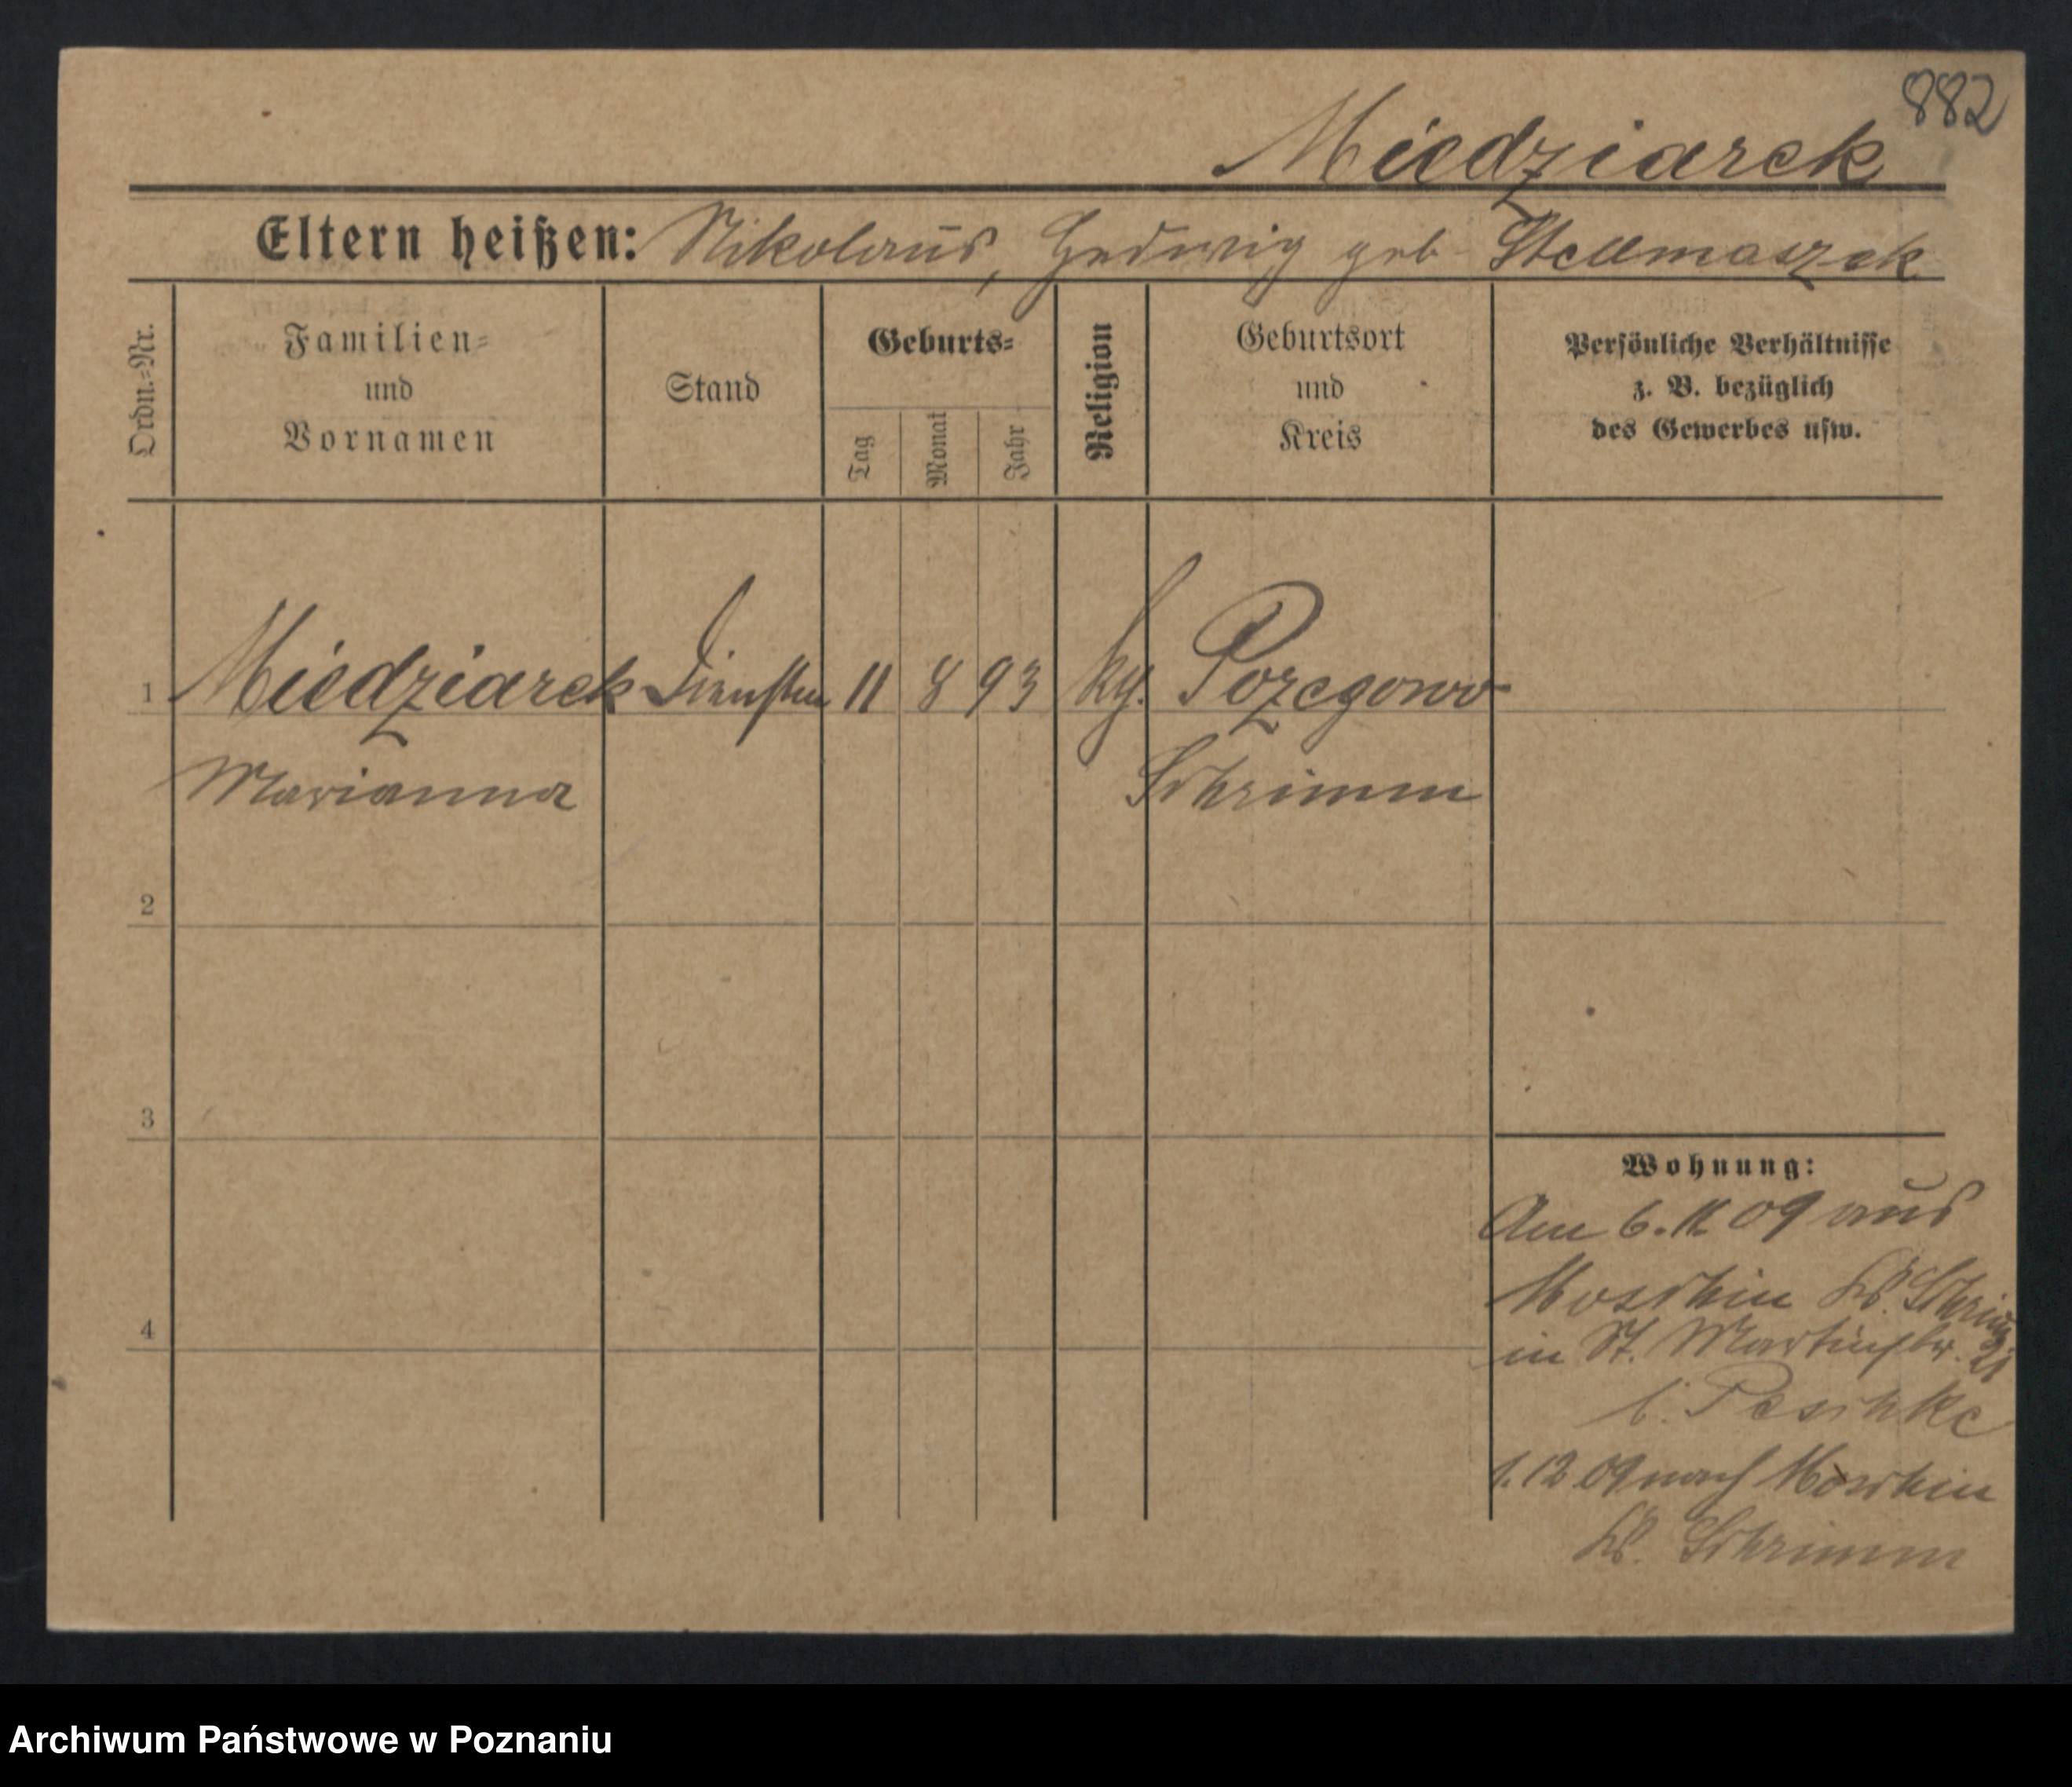 882
Miedziarek
Eltern heißen: Nikolaus, Hedwig geb Stellmaszek
Ordn.-Nr.
Familien-
und
Vornamen
Stand
Geburts-
Tag
Monat
Jahr
Religion
Geburtsort
und
Kreis
Persönliche Verhältnisse
z. B. bezüglich
des Gewerbes usw.
1 Miedziarek 11 8 93 Pozegowo
Marianna Schrimm
2
3
4
Wohnung:
Am 6.11.09 aus
Moschin Ks. Schrimm
in St. Martinstr. 21
b. Peschke
1.12 09 nach Moschin
Ks. Schrimm
Archiwum Państwowe w Poznaniu